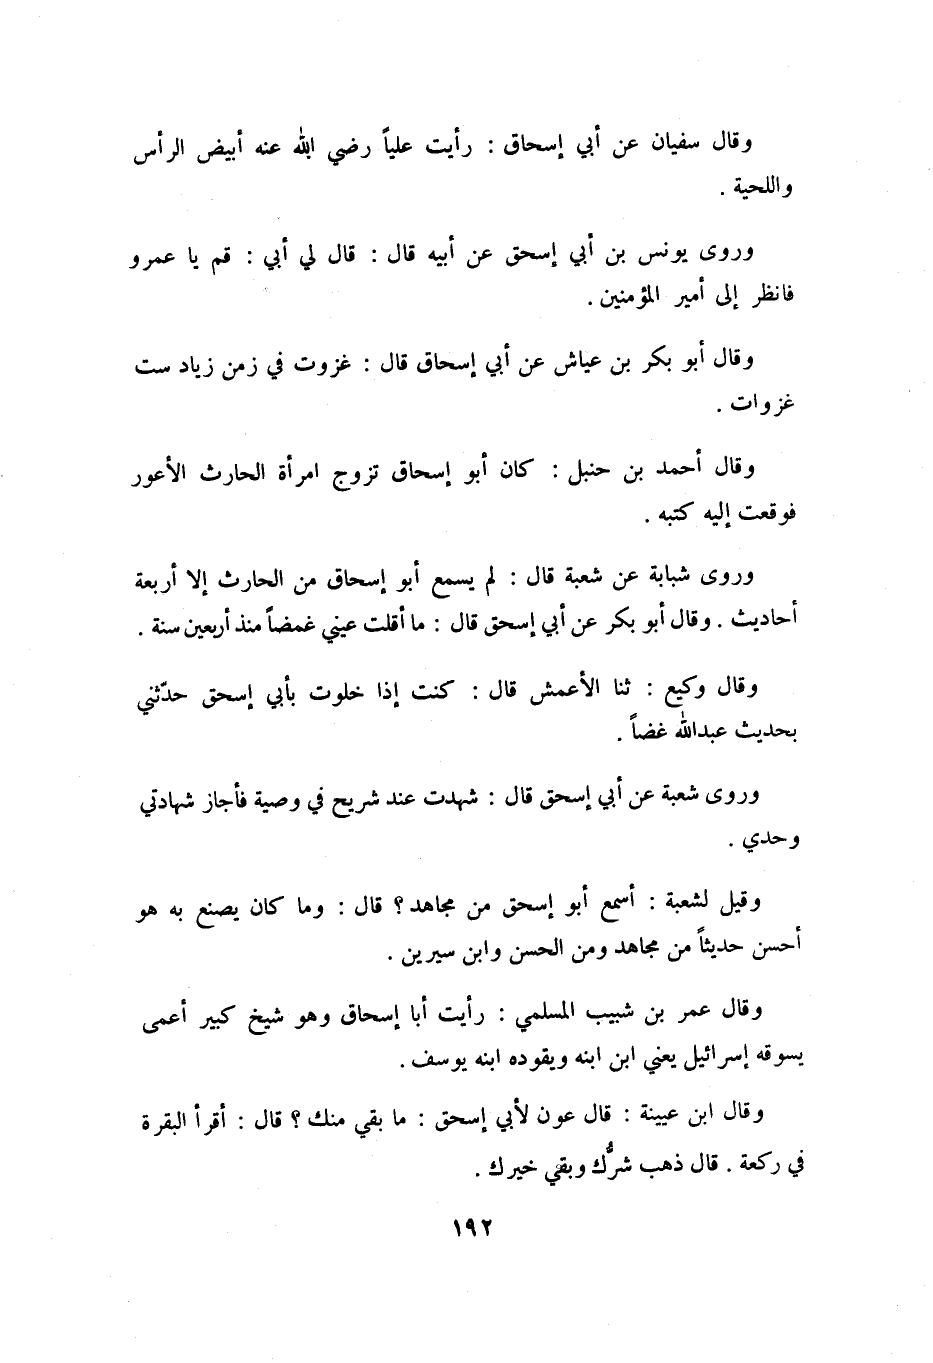 وقال سفيان عن أبي إسحاق : رأيت علياً رضي الله عنه أبيض الرأس
واللحية .
وروى يونس بن أبي إسحق عن أبيه قال : قال لي أبي : قم يا عمرو
فانظر إلى أمير المؤمنين .
وقال أبو بكر بن عياش عن أبي إسحاق قال : غزوت في زمن زياد ست
غزوات .
وقال أحمد بن حنبل : كان أبو إسحاق تزوج امرأة الحارث الأعور
فوقعت إليه كتبه .
وروى شبابة عن شعبة قال : لم يسمع أبو إسحاق من الحارث إلا أربعة
أحاديث . وقال أبو بكر عن أبي إسحق قال : ما أقلت عيني غمضاً منذ أربعين سنة .
وقال وكيع : ثنا الأعمش قال : كنت إذا خلوت بأبي إسحق حدّثني
بحديث عبدالله غضاً .
وروى شعبة عن أبي إسحق قال : شهدت عند شريح في وصية فأجاز شهادتي
وحدي .
وقيل لشعبة : أسمع أبو إسحق من مجاهد ؟ قال : وما كان يصنع به هو
أحسن حديثاً من مجاهد ومن الحسن وابن سيرين .
وقال عمر بن شبيب المسلمي : رأيت أبا إسحاق وهو شيخ كبير أعمى
يسوقه إسرائيل يعني ابن ابنه ويقوده ابنه يوسف .
وقال ابن عيينة : قال عون لأبي إسحق : ما بقي منك ؟ قال : أقرأ البقرة
في ركعة . قال ذهب شرُّك وبقي خيرك .
١٩٢